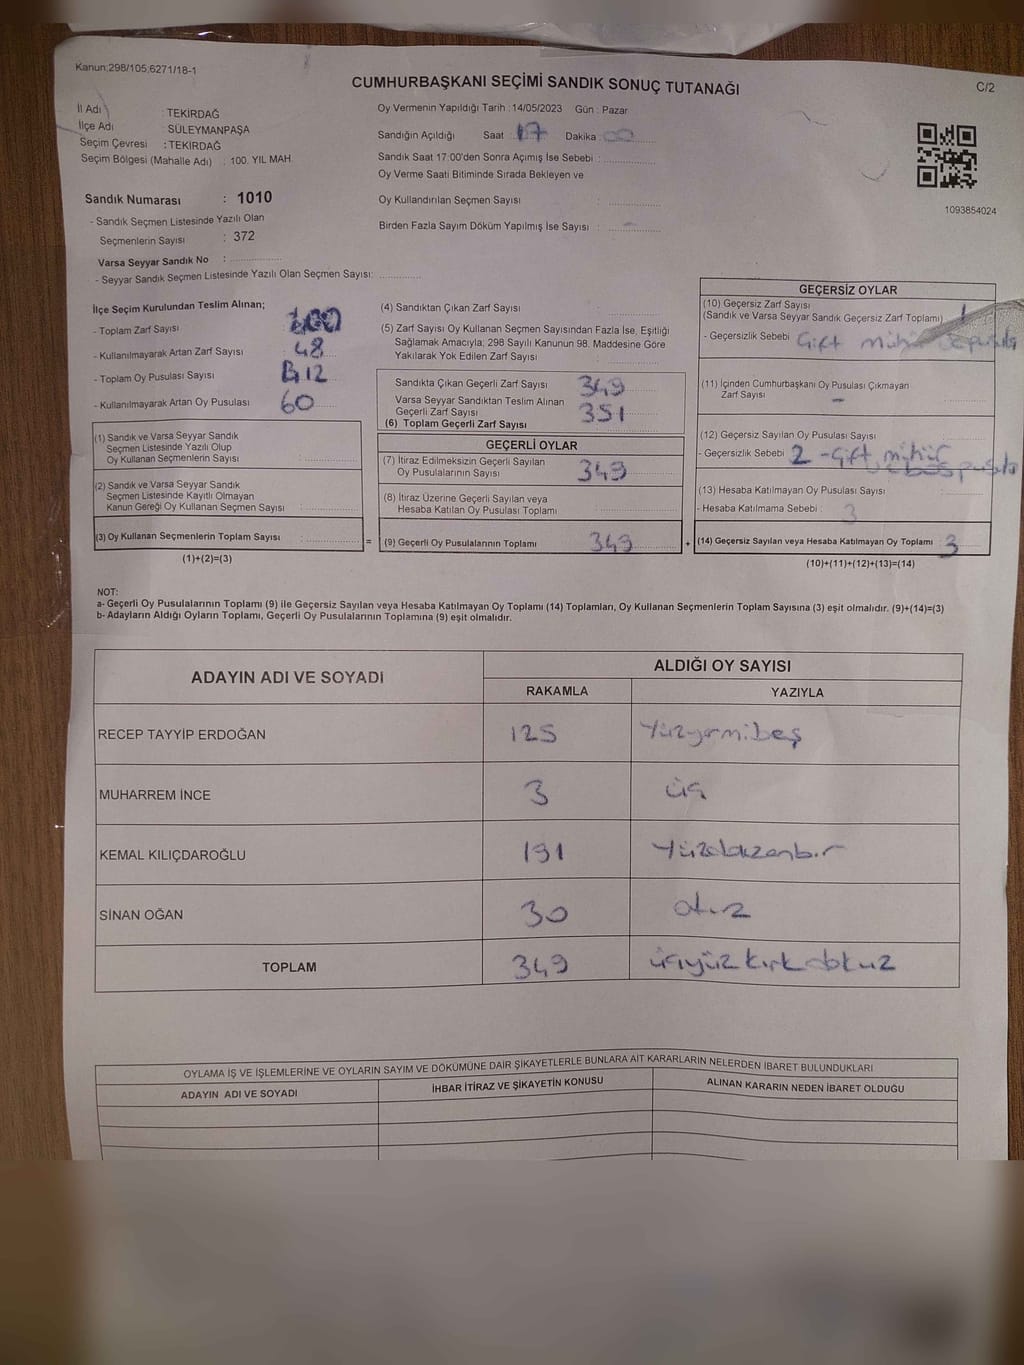 Kanun;298/105;6271/18-1
CUMHURBAŞKANI SEÇİMİ SANDIK SONUÇ TUTANAĞI
C/2
İl Adı : TEKİRDAĞ
İlçe Adı : SÜLEYMANPAŞA
Seçim Çevresi : TEKİRDAĞ
Seçim Bölgesi (Mahalle Adı) : 100. YIL MAH.
Oy Vermenin Yapıldığı Tarih : 14/05/2023 Gün : Pazar
Sandığın Açıldığı Saat : 17 Dakika : 00
Sandık Saat 17:00'den Sonra Açımış İse Sebebi :
Oy Verme Saati Bitiminde Sırada Bekleyen ve
Oy Kullandırılan Seçmen Sayısı :
Birden Fazla Sayım Döküm Yapılmış İse Sayısı : -
1093854024
Sandık Numarası : 1010
- Sandık Seçmen Listesinde Yazılı Olan
Seçmenlerin Sayısı : 372
Varsa Seyyar Sandık No :
- Seyyar Sandık Seçmen Listesinde Yazılı Olan Seçmen Sayısı:
İlçe Seçim Kurulundan Teslim Alınan;
- Toplam Zarf Sayısı 400
- Kullanılmayarak Artan Zarf Sayısı : 48
- Toplam Oy Pusulası Sayısı : 412
- Kullanılmayarak Artan Oy Pusulası : 60
(1) Sandık ve Varsa Seyyar Sandık
Seçmen Listesinde Yazılı Olup
Oy Kullanan Seçmenlerin Sayısı :
(2) Sandık ve Varsa Seyyar Sandık
Seçmen Listesinde Kayıtlı Olmayan
Kanun Gereği Oy Kullanan Seçmen Sayısı :
(3) Oy Kullanan Seçmenlerin Toplam Sayısı :
(1)+(2)=(3)
(4) Sandıktan Çıkan Zarf Sayısı :
(5) Zarf Sayısı Oy Kullanan Seçmen Sayısından Fazla İse, Eşitliği
Sağlamak Amacıyla; 298 Sayılı Kanunun 98. Maddesine Göre
Yakılarak Yok Edilen Zarf Sayısı :
Sandıkta Çıkan Geçerli Zarf Sayısı : 349
Varsa Seyyar Sandıktan Teslim Alınan
Geçerli Zarf Sayısı : 351
(6) Toplam Geçerli Zarf Sayısı :
GEÇERLİ OYLAR
(7) İtiraz Edilmeksizin Geçerli Sayılan
Oy Pusulalarının Sayısı : 349
(8) İtiraz Üzerine Geçerli Sayılan veya
Hesaba Katılan Oy Pusulası Toplamı :
= (9) Geçerli Oy Pusulalarının Toplamı : 349
GEÇERSİZ OYLAR
(10) Geçersiz Zarf Sayısı
(Sandık ve Varsa Seyyar Sandık Geçersiz Zarf Toplamı) : 1
- Geçersizlik Sebebi : Çift mühür
(11) İçinden Cumhurbaşkanı Oy Pusulası Çıkmayan
Zarf Sayısı : -
(12) Geçersiz Sayılan Oy Pusulası Sayısı :
- Geçersizlik Sebebi : 2 -Çift mühür
(13) Hesaba Katılmayan Oy Pusulası Sayısı :
- Hesaba Katılmama Sebebi : 3
+ (14) Geçersiz Sayılan veya Hesaba Katılmayan Oy Toplamı : 3
(10)+(11)+(12)+(13)=(14)
NOT:
a- Geçerli Oy Pusulalarının Toplamı (9) ile Geçersiz Sayılan veya Hesaba Katılmayan Oy Toplamı (14) Toplamları, Oy Kullanan Seçmenlerin Toplam Sayısına (3) eşit olmalıdır. (9)+(14)=(3)
b- Adayların Aldığı Oyların Toplamı, Geçerli Oy Pusulalarının Toplamına (9) eşit olmalıdır.
ADAYIN ADI VE SOYADI
ALDIĞI OY SAYISI
RAKAMLA YAZIYLA
RECEP TAYYİP ERDOĞAN 125 Yüzyirmibeş
MUHARREM İNCE 3 üç
KEMAL KILIÇDAROĞLU 191 Yüzdoksanbir
SİNAN OĞAN 30 otuz
TOPLAM 349 üçyüz kırk dokuz
OYLAMA İŞ VE İŞLEMLERİNE VE OYLARIN SAYIM VE DÖKÜMÜNE DAİR ŞİKAYETLERLE BUNLARA AİT KARARLARIN NELERDEN İBARET BULUNDUKLARI
ADAYIN ADI VE SOYADI İHBAR İTİRAZ VE ŞİKAYETİN KONUSU ALINAN KARARIN NEDEN İBARET OLDUĞU